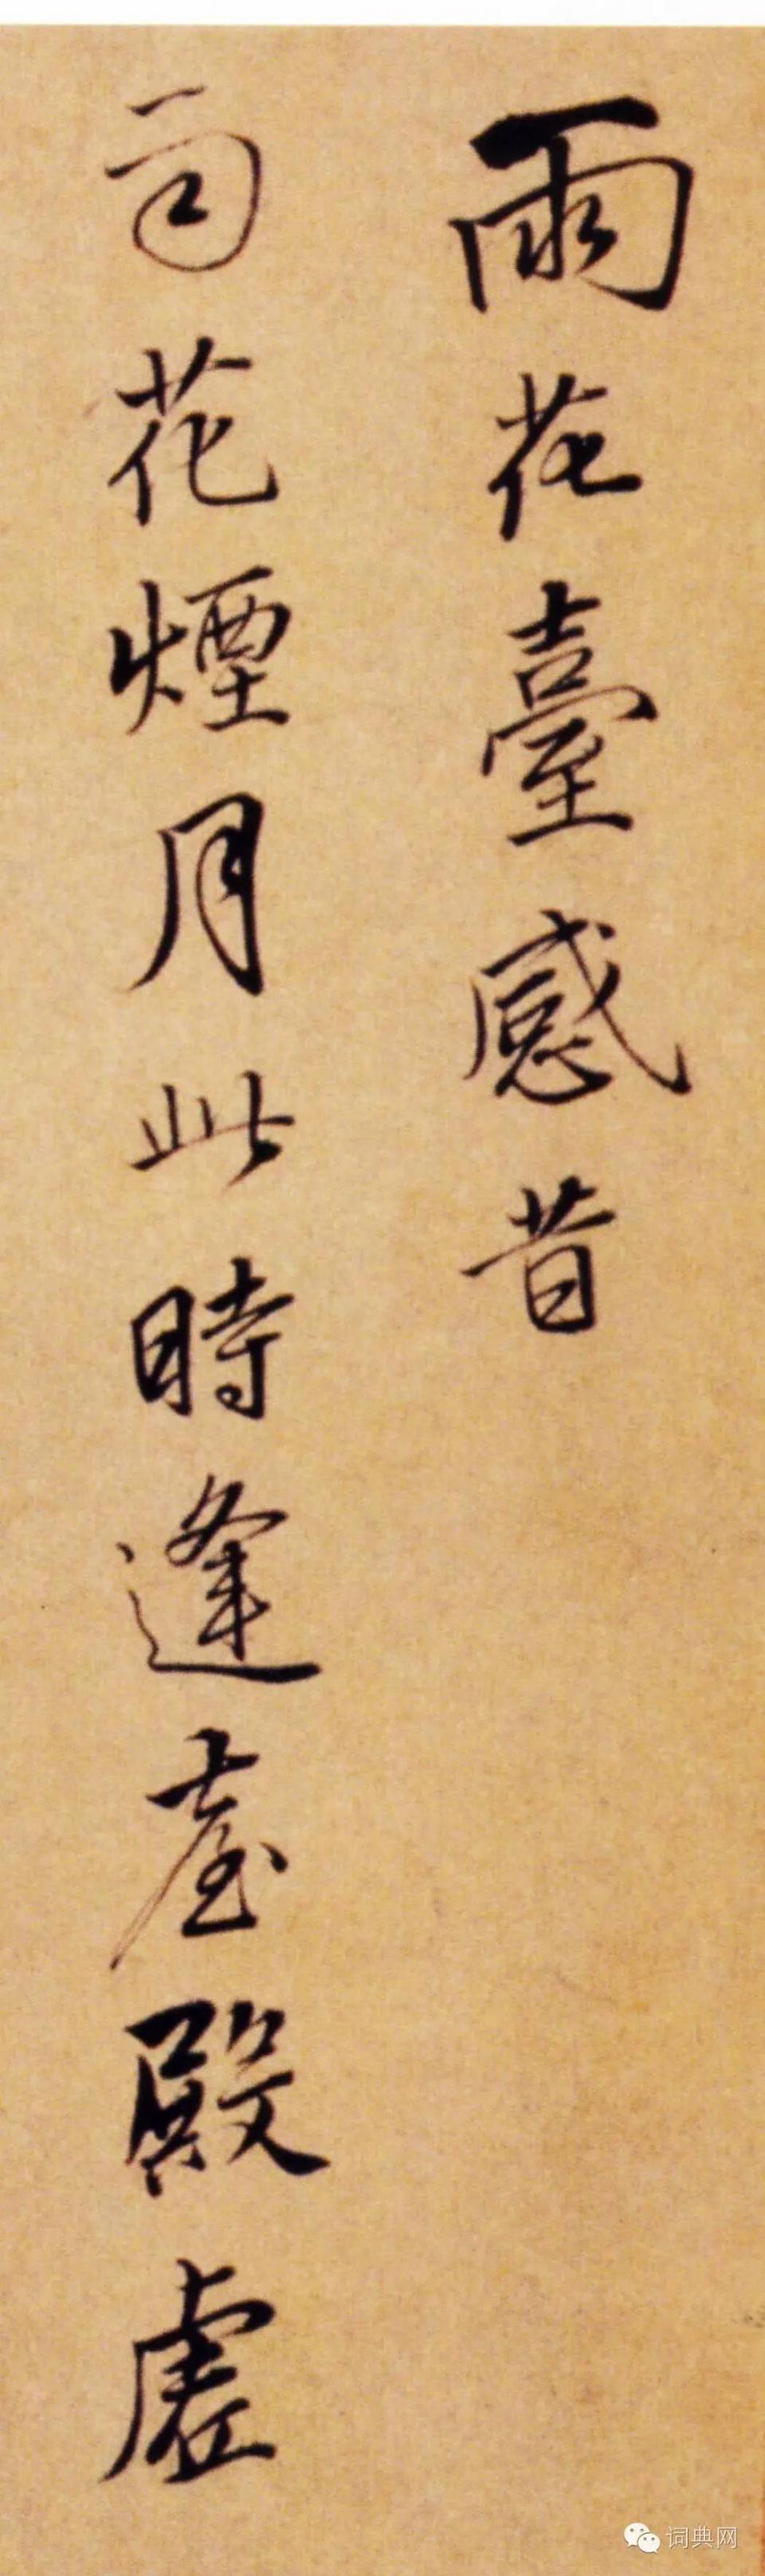 雨花臺感昔
花煙月此時逢臺殿虛
词典网